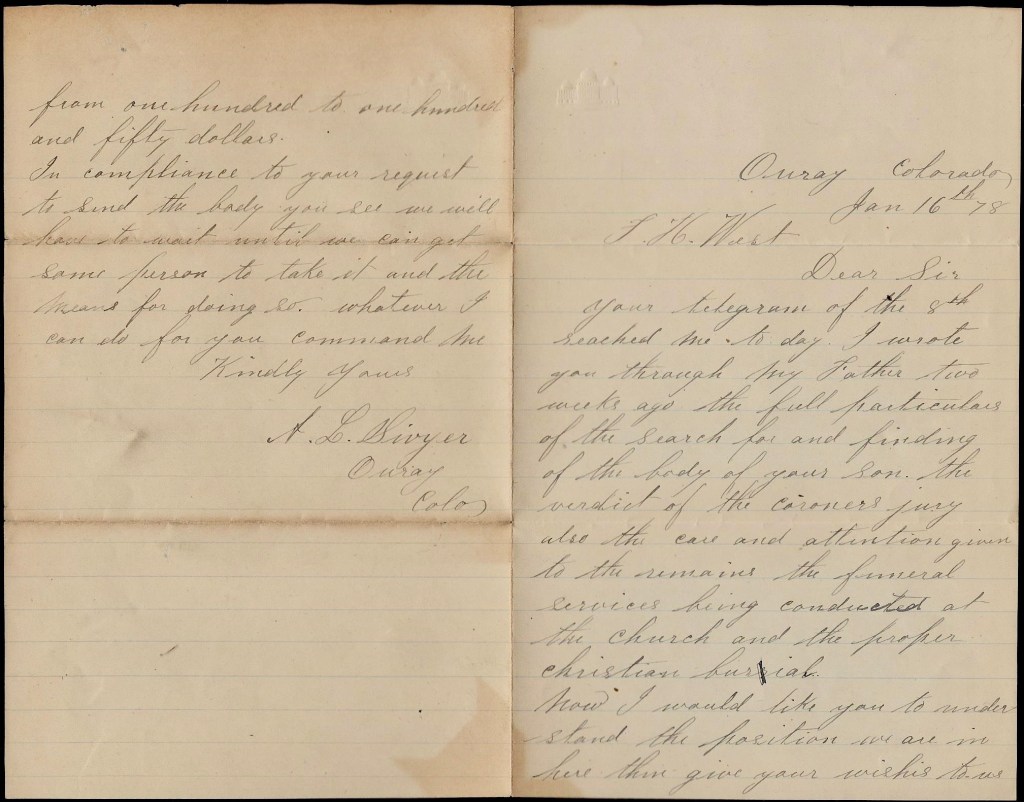 Ouray Colorado
Jan 16th 78
F. H. West
Dear Sir
your telegram of the 8th
reached me to day. I wrote
you through my Father two
weeks ago the full particulars
of the search for and finding
of the body of your son. the
verdict of the coroners jury
also the care and attention given
to the remains the funeral
services being conducted at
the church and the proper
christian burial.
Now I would like you to under
stand the position we are in
here then give your wishes to us
from one hundred to one hundred
and fifty dollars.
In compliance to your request
to send the body you see we will
have to wait until we can get
some person to take it and the
means for doing so. whatever I
can do for you command me
Kindly Yours
A. L. Divyer
Ouray
Colo